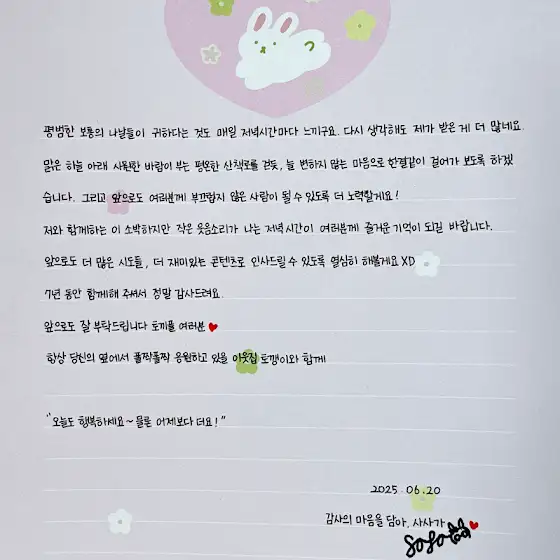 평범한 보통의 나날들이 귀하다는 것도 매일 저녁시간마다 느끼구요. 다시 생각해도 제가 받은 게 더 많네요.
맑은 하늘 아래 시원한 바람이 부는 평온한 산책로를 걷듯, 늘 변하지 않는 마음으로 한결같이 걸어가 보도록 하겠
습니다. 그리고 앞으로도 여러분께 부끄럽지 않은 사람이 될 수 있도록 더 노력할게요!
저와 함께하는 이 소박하지만 작은 웃음소리가 나는 저녁시간이 여러분께 즐거운 기억이 되길 바랍니다.
앞으로도 더 많은 시도들, 더 재미있는 콘텐츠로 인사드릴 수 있도록 열심히 해볼게요 XD
7년 동안 함께해 주셔서 정말 감사드려요.
앞으로도 잘 부탁드립니다 토끼풀 여러분♥
항상 당신의 옆에서 폴짝폴짝 응원하고 있을 이웃집 토깽이와 함께
"오늘도 행복하세요~ 물론 어제보다 더요!"
2025.06.20
감사의 마음을 담아, 사사가 ♥
SaSa